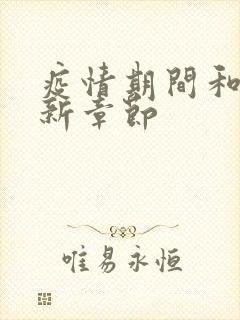 疫情期間和
新章節
唯易永恒